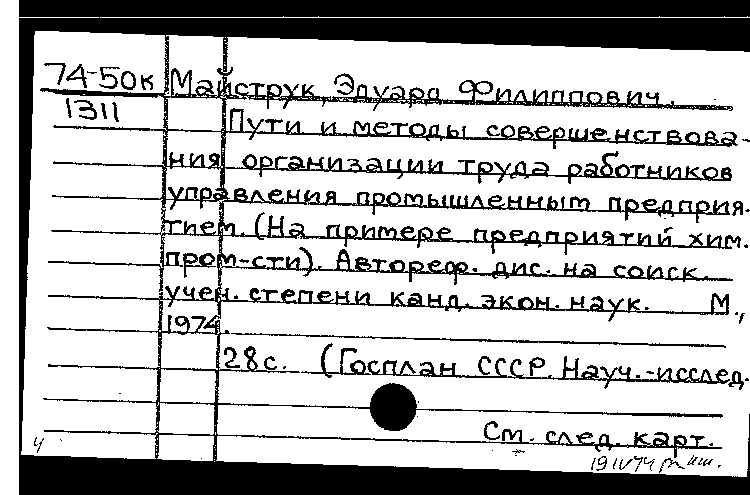 74-50к Майструк, Эдуард Филиппович.
1311
Пути и методы совершенствова-
ния организации труда работников
управления промышленным предприя-
тием. (На примере предприятий хим.
пром-сти). Автореф. дис. на соиск.
учен. степени канд. экон. наук. М.,
1974.
28с. (Госплан СССР. Науч.-исслед.
См. след. карт.
ч
19 IV 74